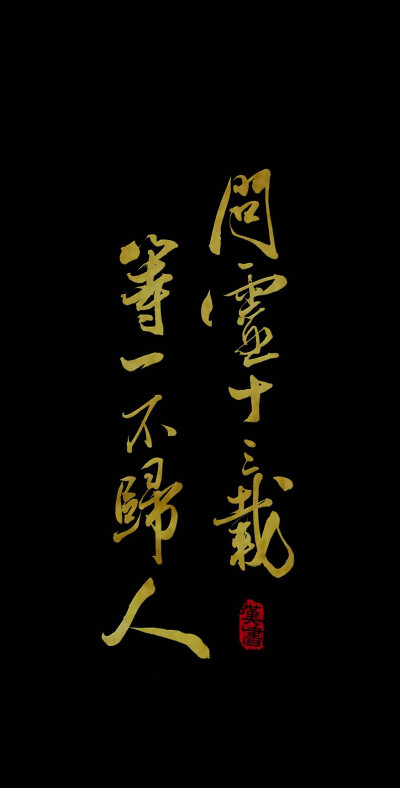 問靈十三載
等一不歸人
漢書